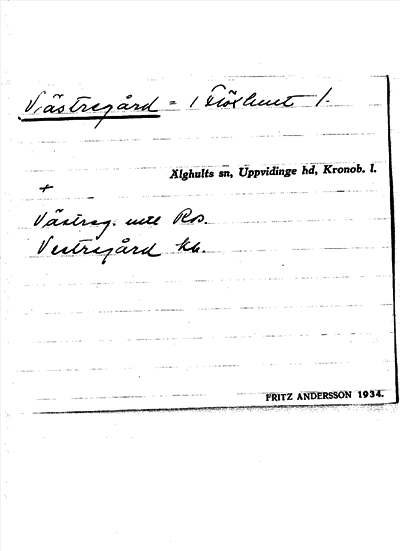 Västregård = 1 Flöxhult 1.
Älghults sn, Uppvidinge hd, Kronob. l.
+
Västreg. utt Ros.
Vestregård kb.
FRITZ ANDERSSON 1934.